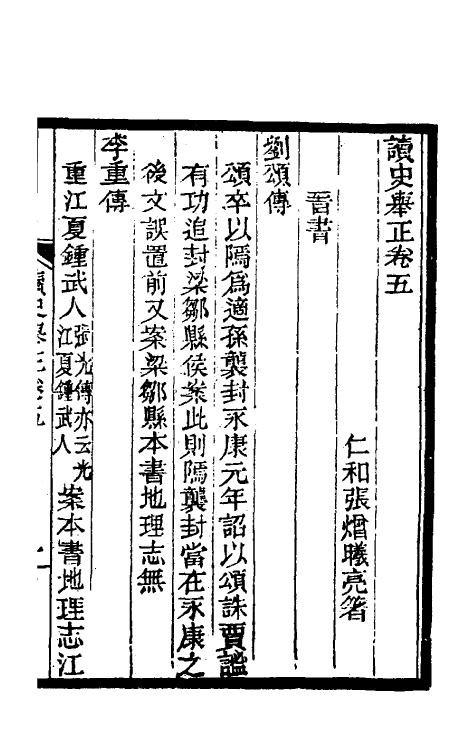 讀史舉正卷五
仁和張熷曦亮箸
晉書
劉頌傳
頌卒以隲為適孫襲封永康元年詔以頌誅賈謐
有功追封梁鄒縣侯案此則隲襲封當在永康之
後文誤置前又案梁鄒縣本書地理志無
李重傳
重江夏鍾武人張光傳亦云光江夏鍾武人案本書地理志江
讀史舉正卷五
一